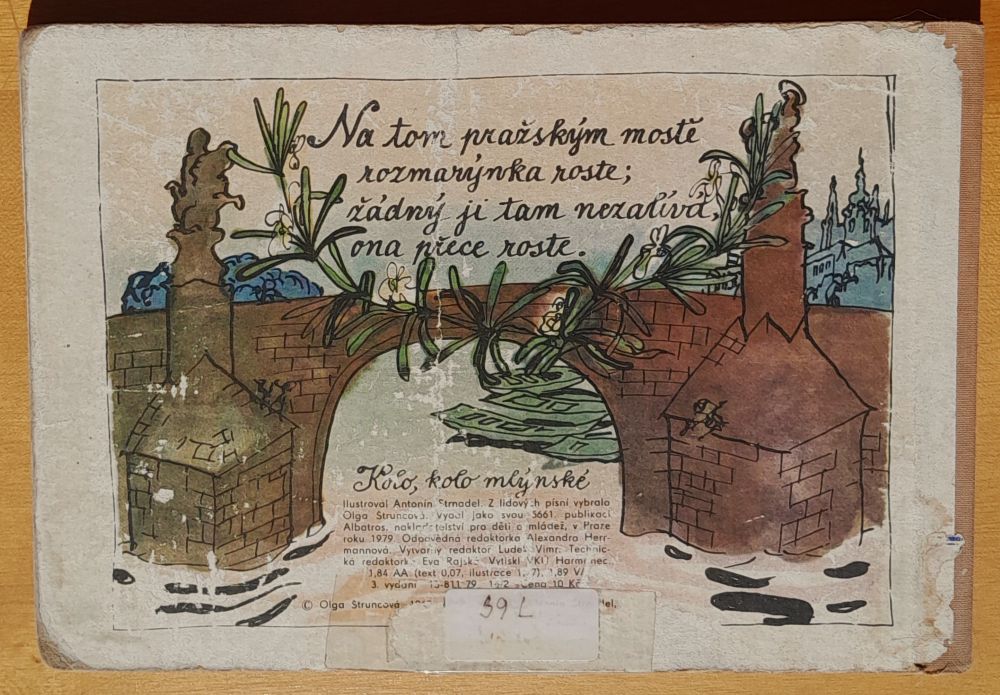 Na tom pražským mostě
rozmarýnka roste;
žádný ji tam nezalívá,
ona přece roste.
Kolo, kolo mlýnské
Ilustroval Antonín Strnadel. Z lidových písní vybrala
Olga Štruncová. Vydal jako svou 3661. publikaci
Albatros, nakladatelství pro děti a mládež, v Praze
roku 1979. Odpovědná redaktorka Alexandra Herr-
mannová. Výtvarný redaktor Luděk Vimr. Technic-
ká redaktorka Eva Rajská. Vytiskl Harmanec.
1,84 AA (text 0,07, ilustrace 1,77). 1,89 VA
3. vydání 13-811-79 14/2 Cena 10 Kčs
© Olga Štruncová,
39 L